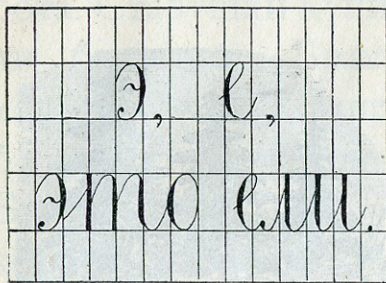 э, е,
это ели.